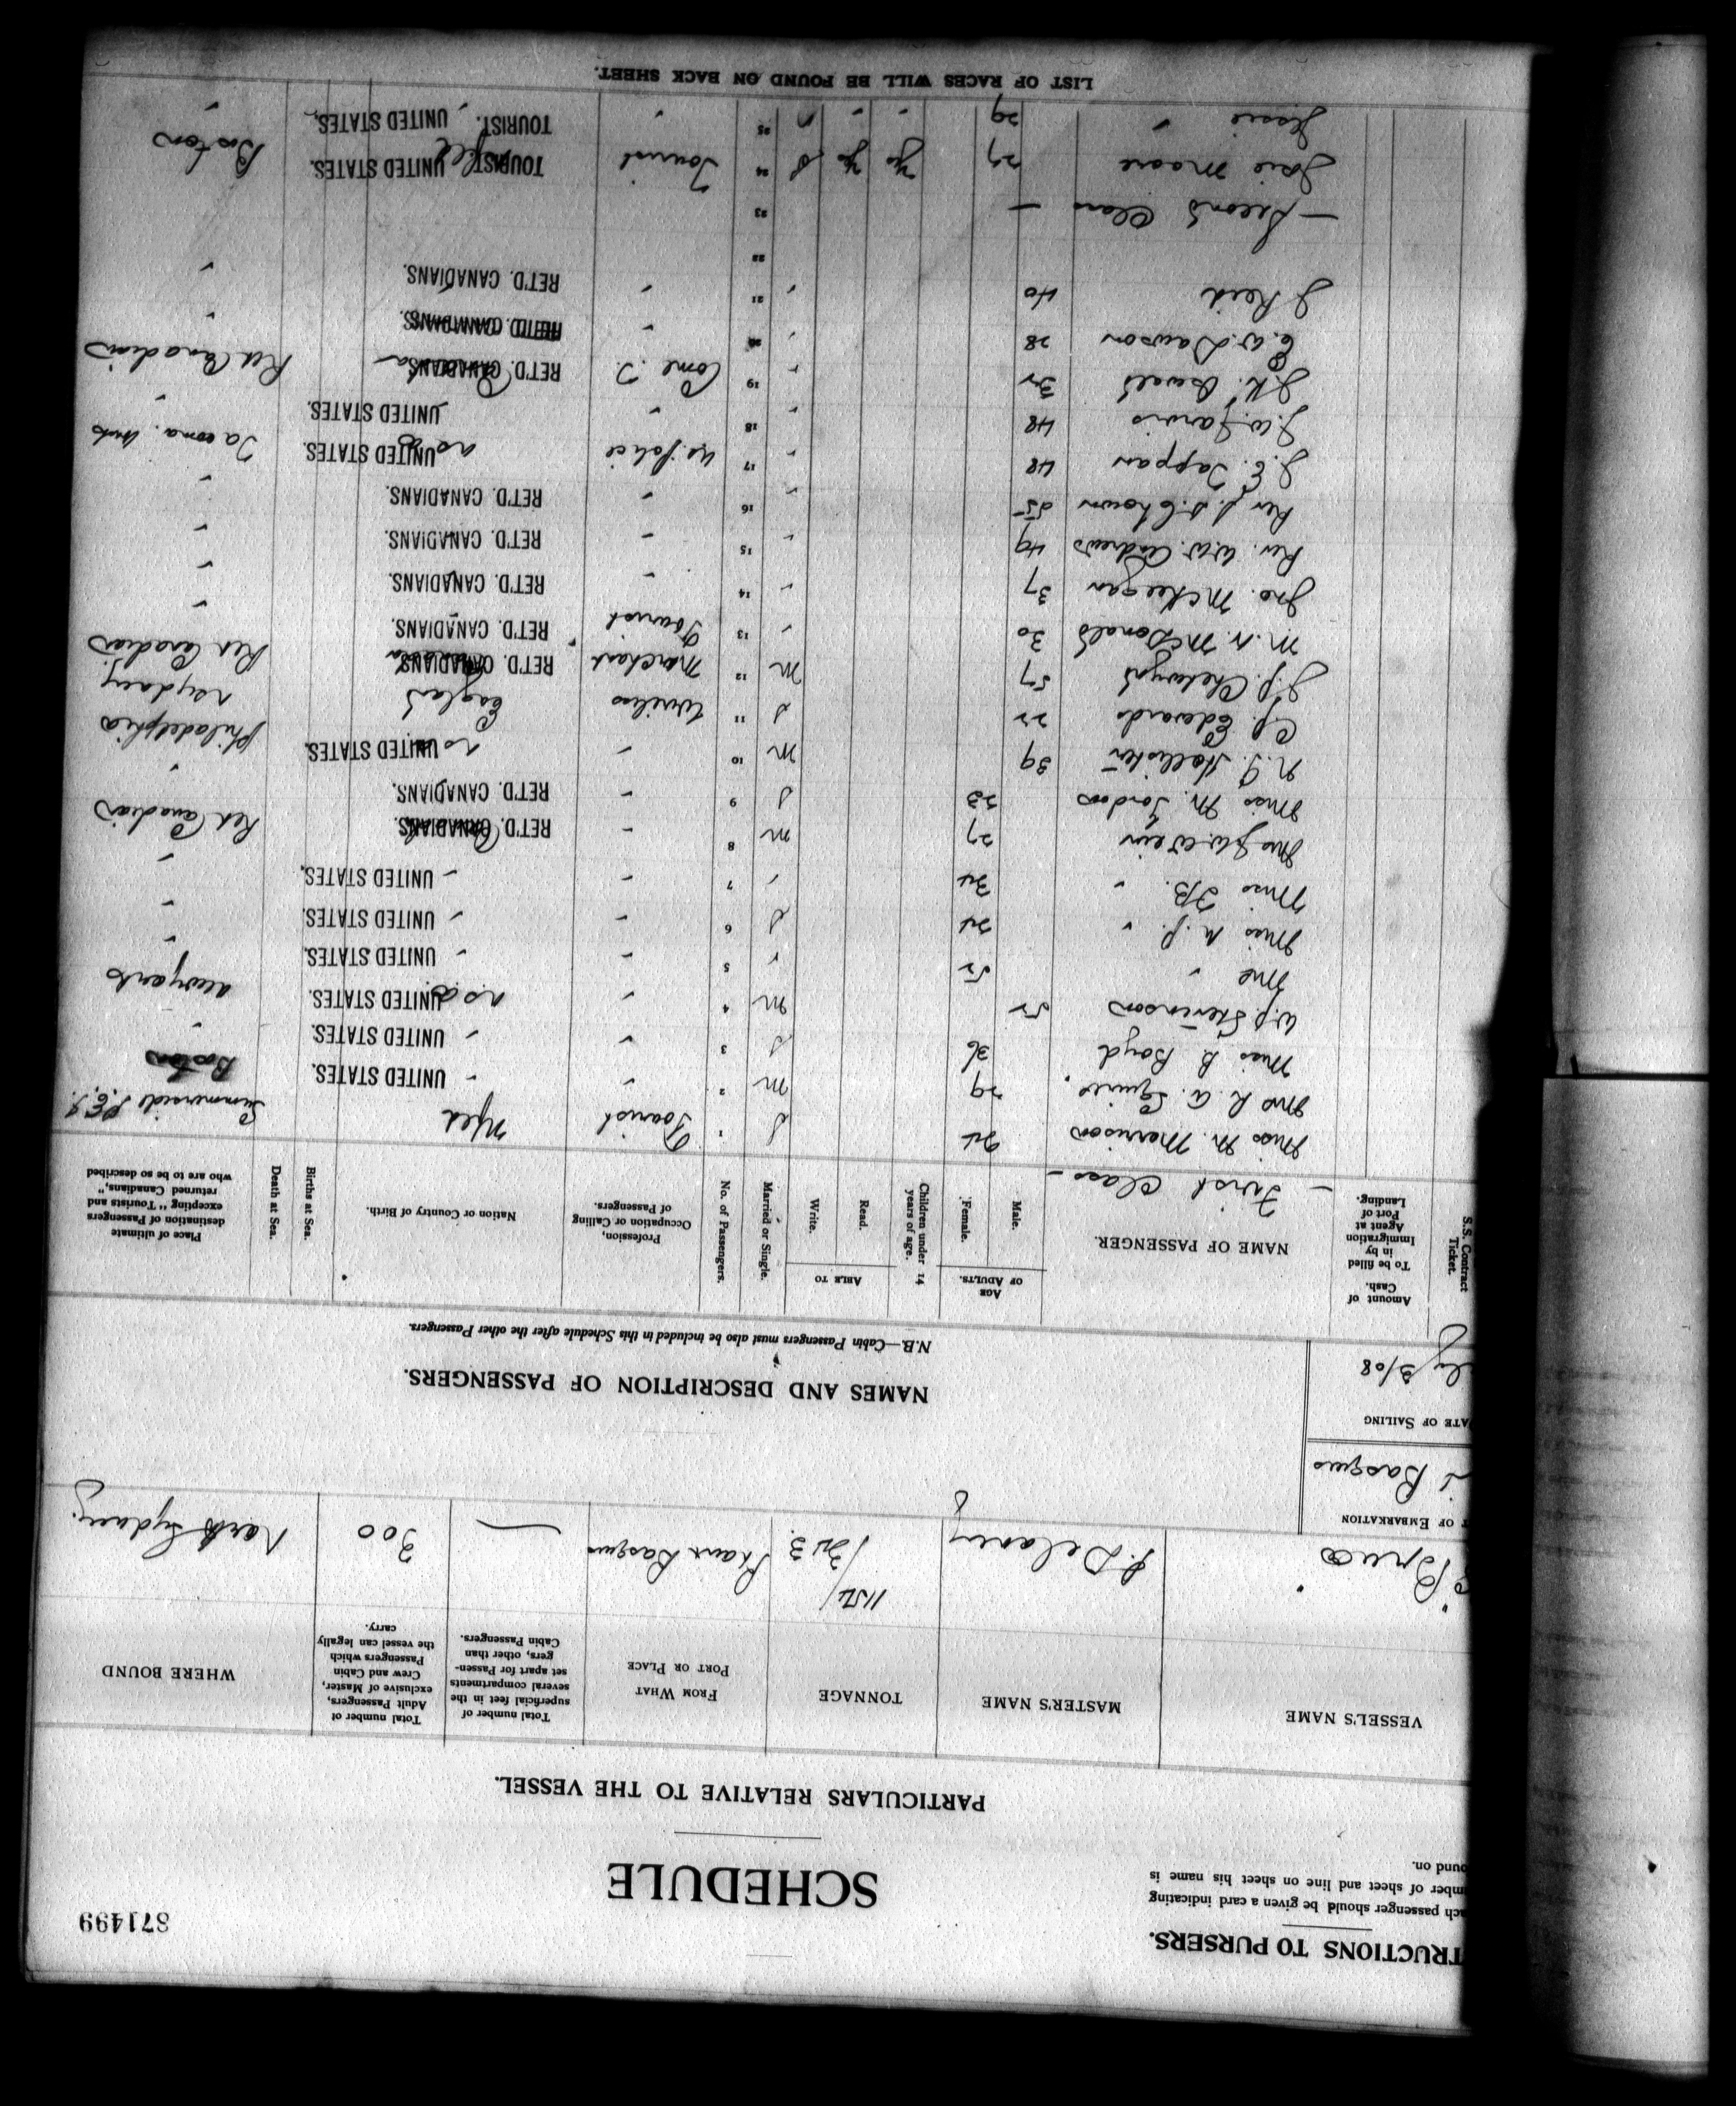 TRUCTIONS TO PURSERS.
ach passenger should be given a card indicating
mber of sheet and line on sheet his name is
ound on.
871499
SCHEDULE
PARTICULARS RELATIVE TO THE VESSEL.
VESSEL'S NAME
MASTER'S NAME
TONNAGE
FROM WHAT PORT OR PLACE
Total number of superficial feet in the several compartments set apart for Passengers, other than Cabin Passengers.
Total number of Adult Passengers, exclusive of Master, Crew and Cabin Passengers which the vessel can legally carry.
WHERE BOUND
Bruce
P. Delaney
1154/323
Basques
—
300
North Sydney.
T OF EMBARKATION
Basques
ATE OF SAILING
uly 3/08
NAMES AND DESCRIPTION OF PASSENGERS.
N.B.—Cabin Passengers must also be included in this Schedule after the other Passengers.
S.S. Contract Ticket.
Amount of Cash.
To be filled in by Immigration Agent at Port of Landing.
NAME OF PASSENGER.
AGE OF ADULTS.
Male.
Female.
Children under 14 years of age.
ABLE TO
Read.
Write.
Married or Single.
No. of Passengers.
Profession, Occupation or Calling of Passengers.
Nation or Country of Birth.
Births at Sea.
Death at Sea.
Place of ultimate destination of Passengers excepting "Tourists and returned Canadians," who are to be so described
— First Class —
Miss M. Morrison 24 S 1 Tourist Nfld Summerside P.E.I.
Mrs R. A. Squires 29 M 2 " " UNITED STATES. Boston
Miss B Boyd 36 S 3 " " UNITED STATES. "
W.J. Stevenson 52 M 4 " U.S.A. UNITED STATES. New York
Mrs " 52 " 5 " " UNITED STATES. "
Miss M. J. " 24 S 6 " " UNITED STATES. "
Miss F.B. " 34 " 7 " " UNITED STATES. "
Mrs J.W. Weir 27 M 8 " RET'D. CANADIANS. Ret Canadian
Miss M. Jordon 23 S 9 " RET'D. CANADIANS. "
N. J. Hollister 39 M 10 " UNITED STATES. Philadelphia
C.P. Edwards 22 S 11 Wireless England N Sydney
J.P. Chetwynd 57 M 12 Merchant Canada RET'D. CANADIANS. Ret Canadian
M. N. McDonald 30 " 13 Tourist RET'D. CANADIANS. "
Jno. McKeegan 37 " 14 " RET'D. CANADIANS. "
Rev. W.W. Andrews 49 " 15 " RET'D. CANADIANS. "
Rev J. S. Chown 55 " 16 " RET'D. CANADIANS. "
J. E. Tappan 48 " 17 UNITED STATES. Tacoma.
J. W. Jarvis 48 " 18 " UNITED STATES. "
J.K. 32 " 19 Com. T. Canada RET'D. CANADIANS. Ret Canadian
E. W. Dawson 28 " 20 " RET'D. CANADIANS. "
J. Reid 40 " 21 " RET'D. CANADIANS. "
22
— Second Class — 23
Josie Moore 27 S 24 Tourist Nfld TOURIST. UNITED STATES. Boston
Jessie " 29 " 25 " TOURIST. UNITED STATES. "
LIST OF RACES WILL BE FOUND ON BACK SHEET.